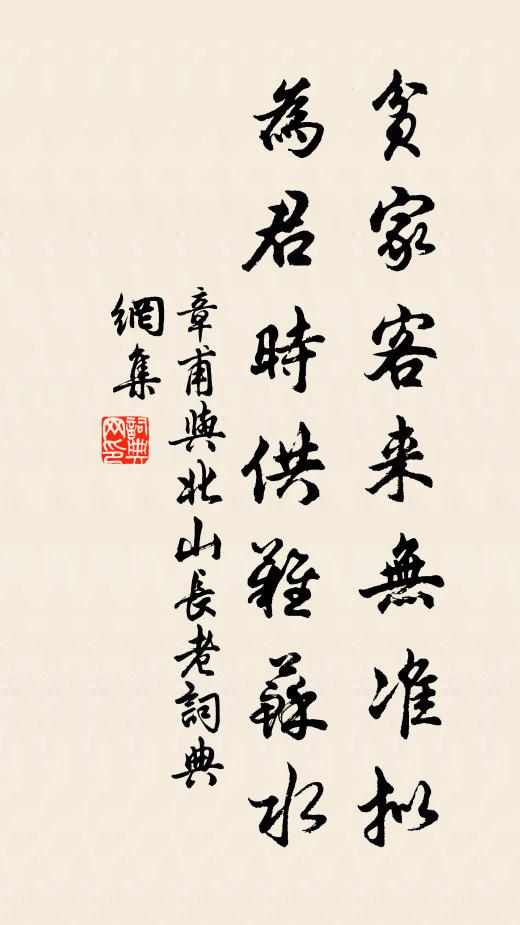 貧家客来無准拟
為君時供雞蘇水
章甫與北山長老詞典
網集
詞典网印